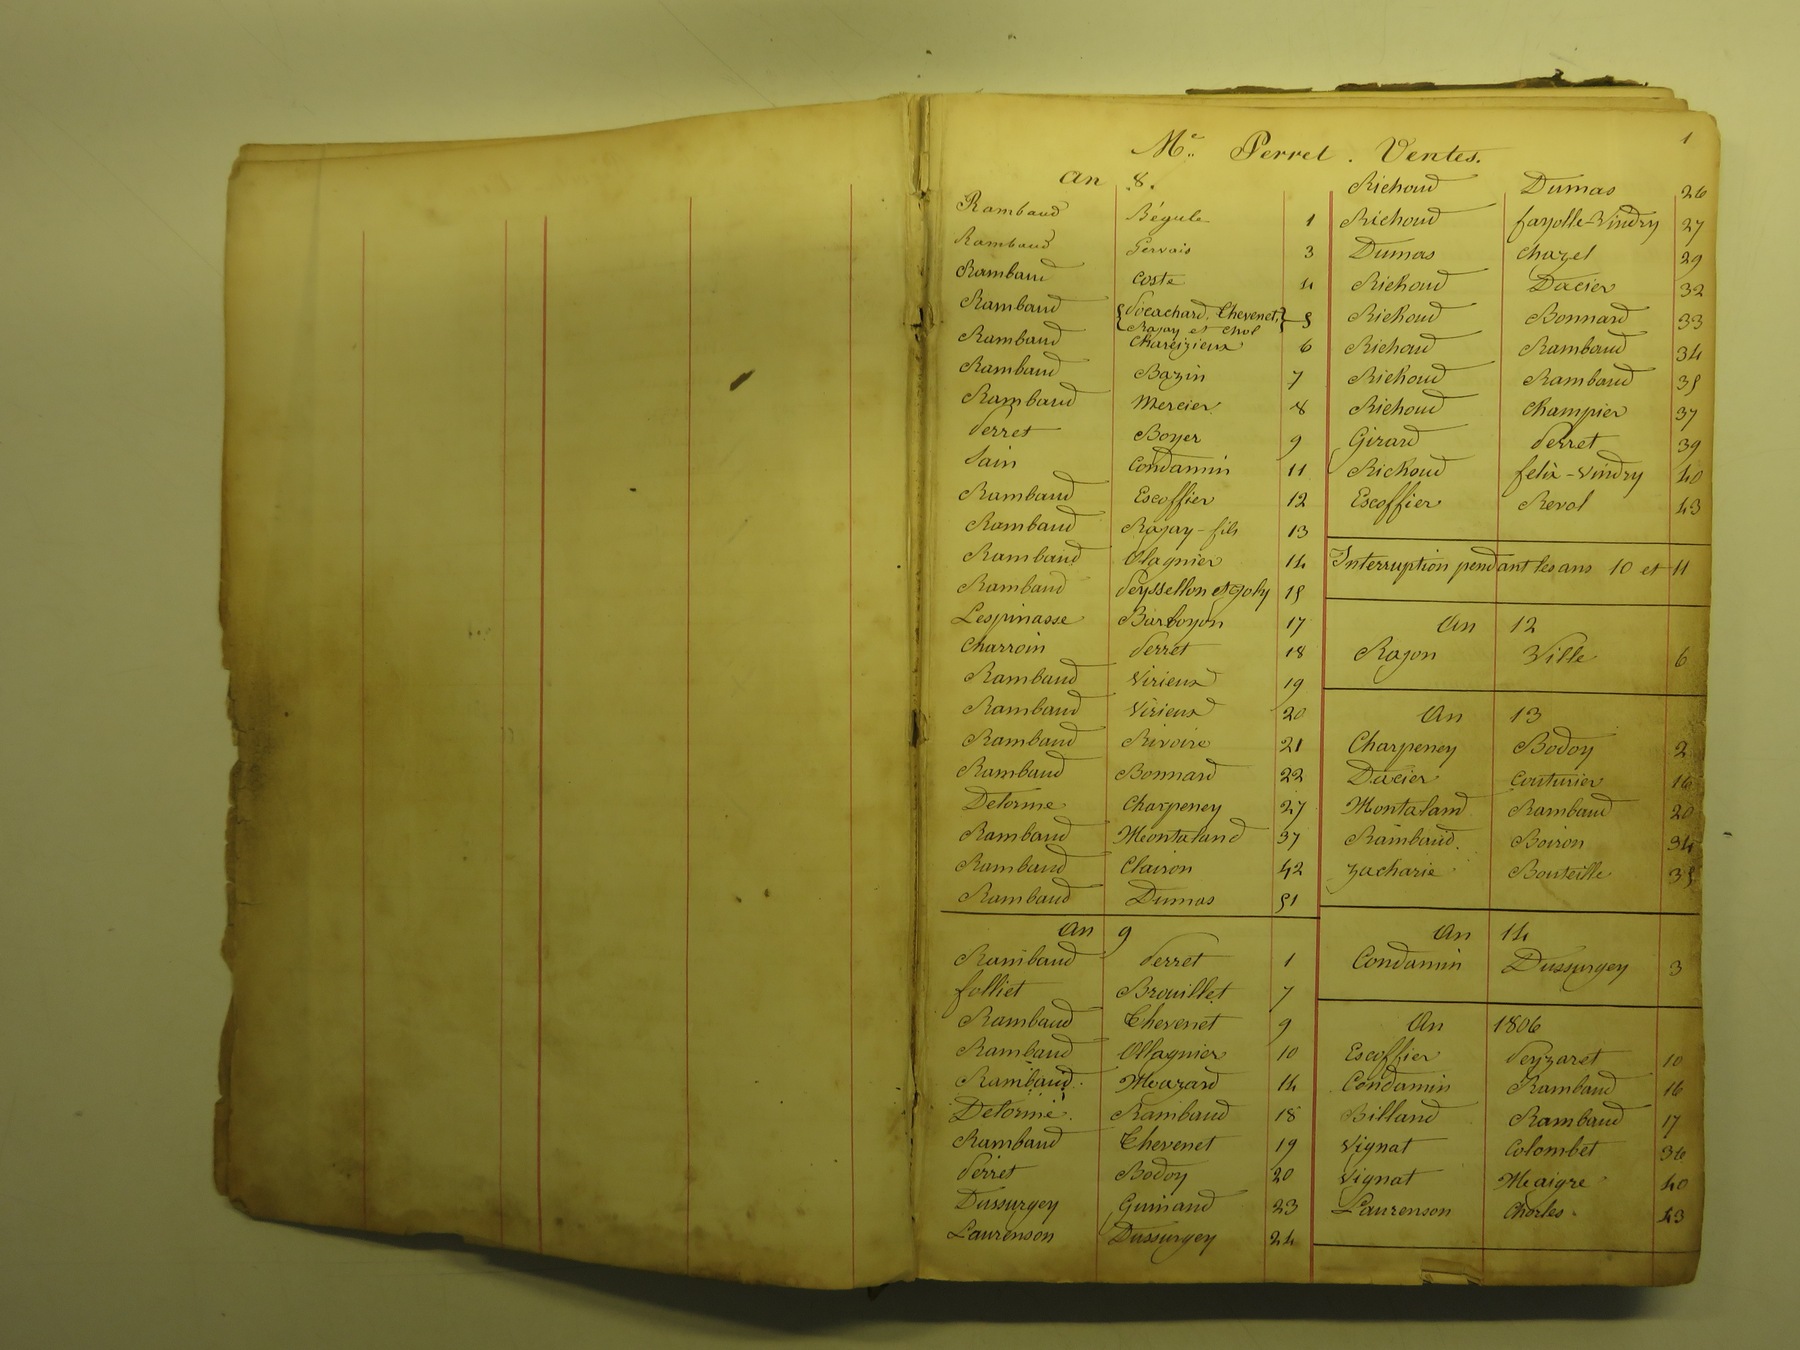 1
Me Perret. Ventes.
An 8.
Rambaud Bégule 1
Rambaud Gervais 3
Rambaud Coste 4
Rambaud { Pocachard, Chevenet, } 5
Rajay et Chol
Rambaud Chareizieux 6
Rambaud Bazin 7
Rambaud Mercier 8
Perret Boyer 9
Sain Condamin 11
Rambaud Escoffier 12
Rambaud Rajay-fils 13
Rambaud Ollagnier 14
Rambaud Peyssellon et Joly 15
Lespinasse Barboyon 17
Charroin Perret 18
Rambaud Virieux 19
Rambaud Virieux 20
Rambaud Rivoire 21
Rambaud Bonnard 22
Delorme Charpeney 27
Rambaud Montaland 37
Rambaud Clairon 42
Rambaud Dumas 51
An 9
Rambaud Perret 1
Folliet Brouillet 7
Rambaud Chevenet 9
Rambaud Ollagnier 10
Rambaud. Mazard 14
Delorme. Rambaud 18
Rambaud Chevenet 19
Perret Bodoy 20
Dussurgey Guinand 23
Laurenson Dussurgey 24
Richoud Dumas 26
Richoud Fayolle-Vindry 27
Dumas Chazel 29
Richoud Dacier 32
Richoud Bonnard 33
Richoud Rambaud 34
Richoud Rambaud 35
Richoud Champier 37
Girard Perret 39
Richoud Félix-Vindry 40
Escoffier Revol 43
Interruption pendant les ans 10 et 11
An 12
Rajon Ville 6
An 13
Charpeney Bodoy 2
Dacier Couturier 16
Montaland Rambaud 20
Rambaud. Boiron 34
Zacharie Bouteille 35
An 14
Condamin Dussurgey 3
An 1806
Escoffier Peyzaret 10
Condamin Rambaud 16
Billand Rambaud 17
Vignat Colombet 36
Vignat Maigre 40
Laurenson Charles. 43